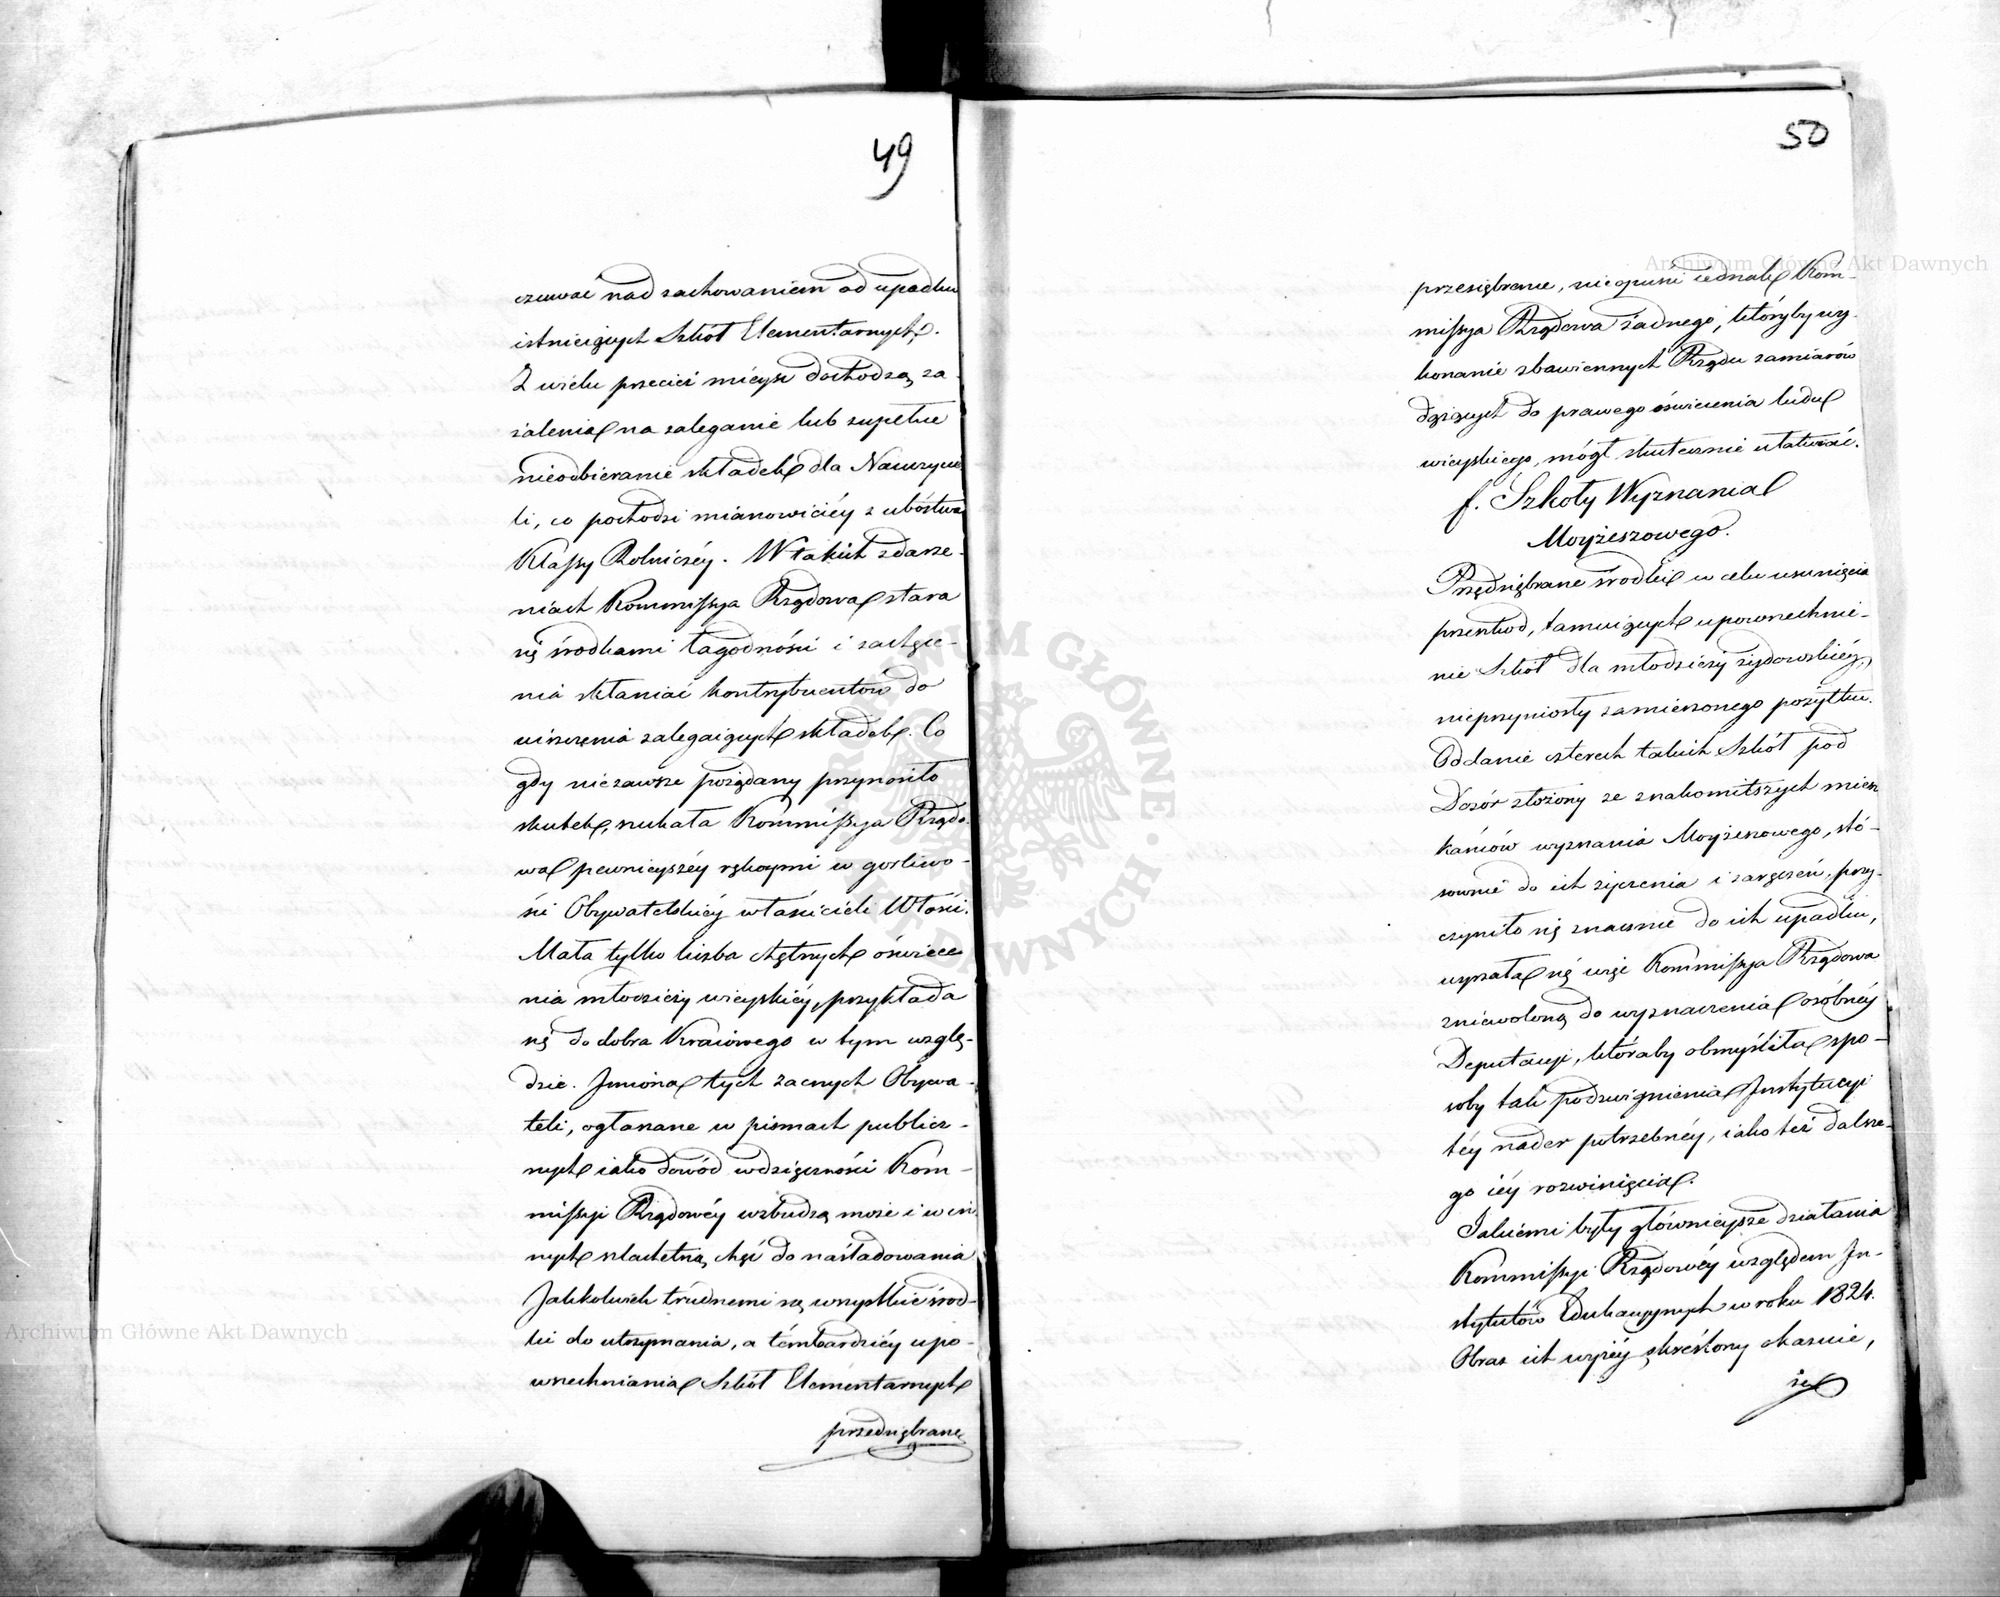 49
czuwać nad zachowaniem od upadku
istnieiących Szkół Elementarnych.
Z wielu przecież mieysc dochodzą za-
żalenia na zaleganie lub zupełne
nieodbieranie składek dla Nauczycie
li, co pochodzi mianowiciéy z ubóstwa
Klassy Rolniczéy. W takich zdarze-
niach Kommissya Rządowa stara
się środkami łagodności i zachęce-
nia skłaniać kontrybuentów do
uiszczenia zalegaiących składek. Co
gdy niezawsze pożądany przynosiło
skutek, szukała Kommissya Rządo-
wa pewnieyszéy rękoymi w gorliwo-
ści Obywatelskiéy właścicieli Włości.
Mała tylko liczba chętnych oświece
nia młodzieży wieyskiéy, przykłada
się do dobra Kraiowego w tym wzglę-
dzie. Imiona tych zacnych Obywa-
teli, ogłaszane w pismach publicz-
nych iako dowód wdzięczności Kom-
missyi Rządowéy wzbudzą może i w in
nych szlachetną chęć do naśladowania
Jakkolwiek trudnemi są wszystkie środ-
ki do utrzymania, a témbardziéy upo-
wszechniania Szkół Elementarnych
przedsiębrane
50
przesiębrane, nieopuści iednak Kom-
missya Rządowa żadnego, któryby wy-
konanie zbawiennych Rządu zamiarów
dążących do prawego oświecenia ludu
wieyskiego, mógł skutecznie ułatwiać.
f. Szkoły Wyznania
Moyżeszowego.
Przedsiębrane środki w celu usunięcia
przeszkod, tamuiących upowszechnie-
nie Szkół dla młodzieży żydowskiéy,
nieprzyniosły zamierzonego pożytku.
Oddanie czterech takich Szkół pod
Dozór złożony ze znakomitszych miesz
kańców wyznania Moyżeszowego, stó-
sownie do ich życzenia i zaręczeń, przy-
czyniło się znacznie do ich upadku,
uyrzała się więc Kommissya Rządowa
zniewoloną do wyznaczenia osóbnéy
Deputacyi, któraby obmyśliła spo-
soby tak podzwignienia Instytucyi
téy nader potrzebnéy, iako też dalsze-
go iéy rozwinięcia.
Jakiémi były głównieysze działania
Kommissyi Rządowéy względem In-
stytutów Edukacyynych w roku 1824.
Obraz ich wyżéy skréślony okazuie,
że
Archiwum Główne Akt Dawnych
Archiwum Główne Akt Dawnych
ARCHIWUM GŁÓWNE AKT DAWNYCH